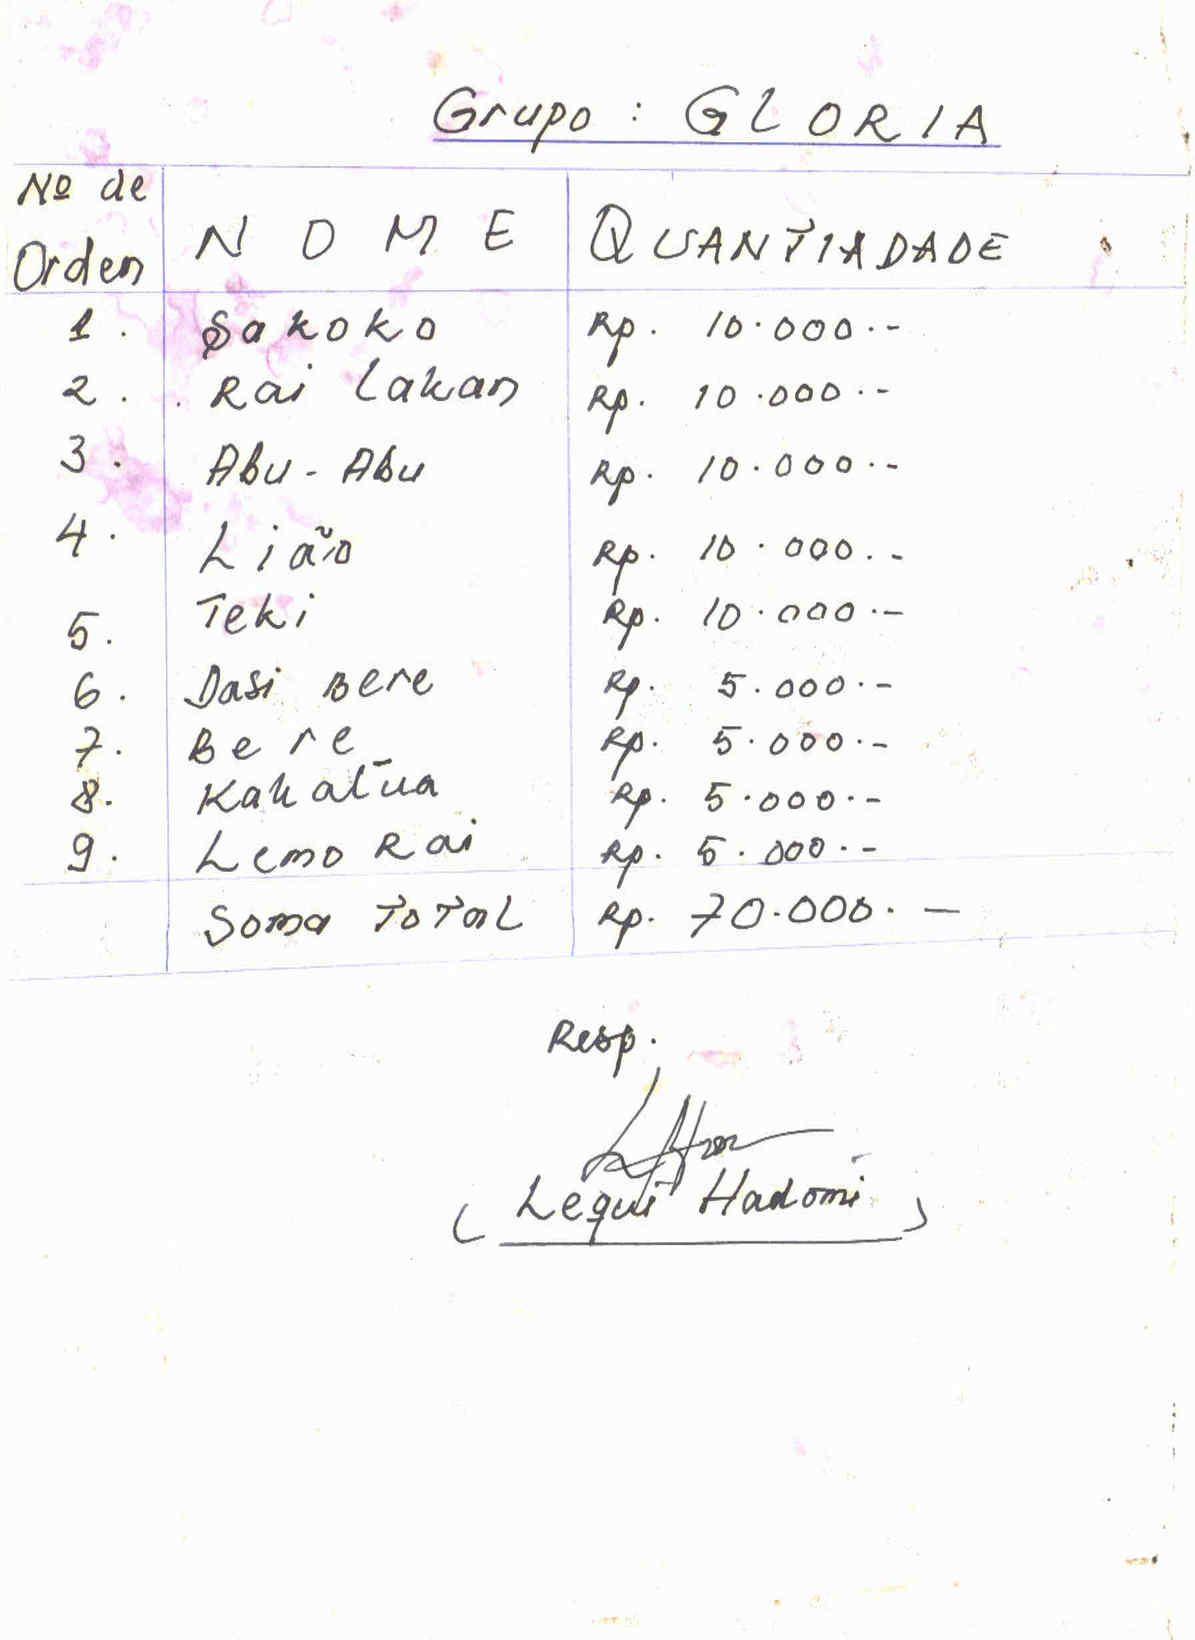 Grupo : GLORIA
Nº de Orden NOME QUANTIADADE
1. Sakoko Rp. 10.000.-
2. Rai Lakan Rp. 10.000.-
3. Abu-Abu Rp. 10.000.-
4. Lião Rp. 10.000.-
5. Teki Rp. 10.000.-
6. Dasi Bere Rp. 5.000.-
7. Bere Rp. 5.000.-
8. Kakatua Rp. 5.000.-
9. Lemo Rai Rp. 5.000.-
Soma Total Rp. 70.000.-
Resp.
( Lequi Hadomi )